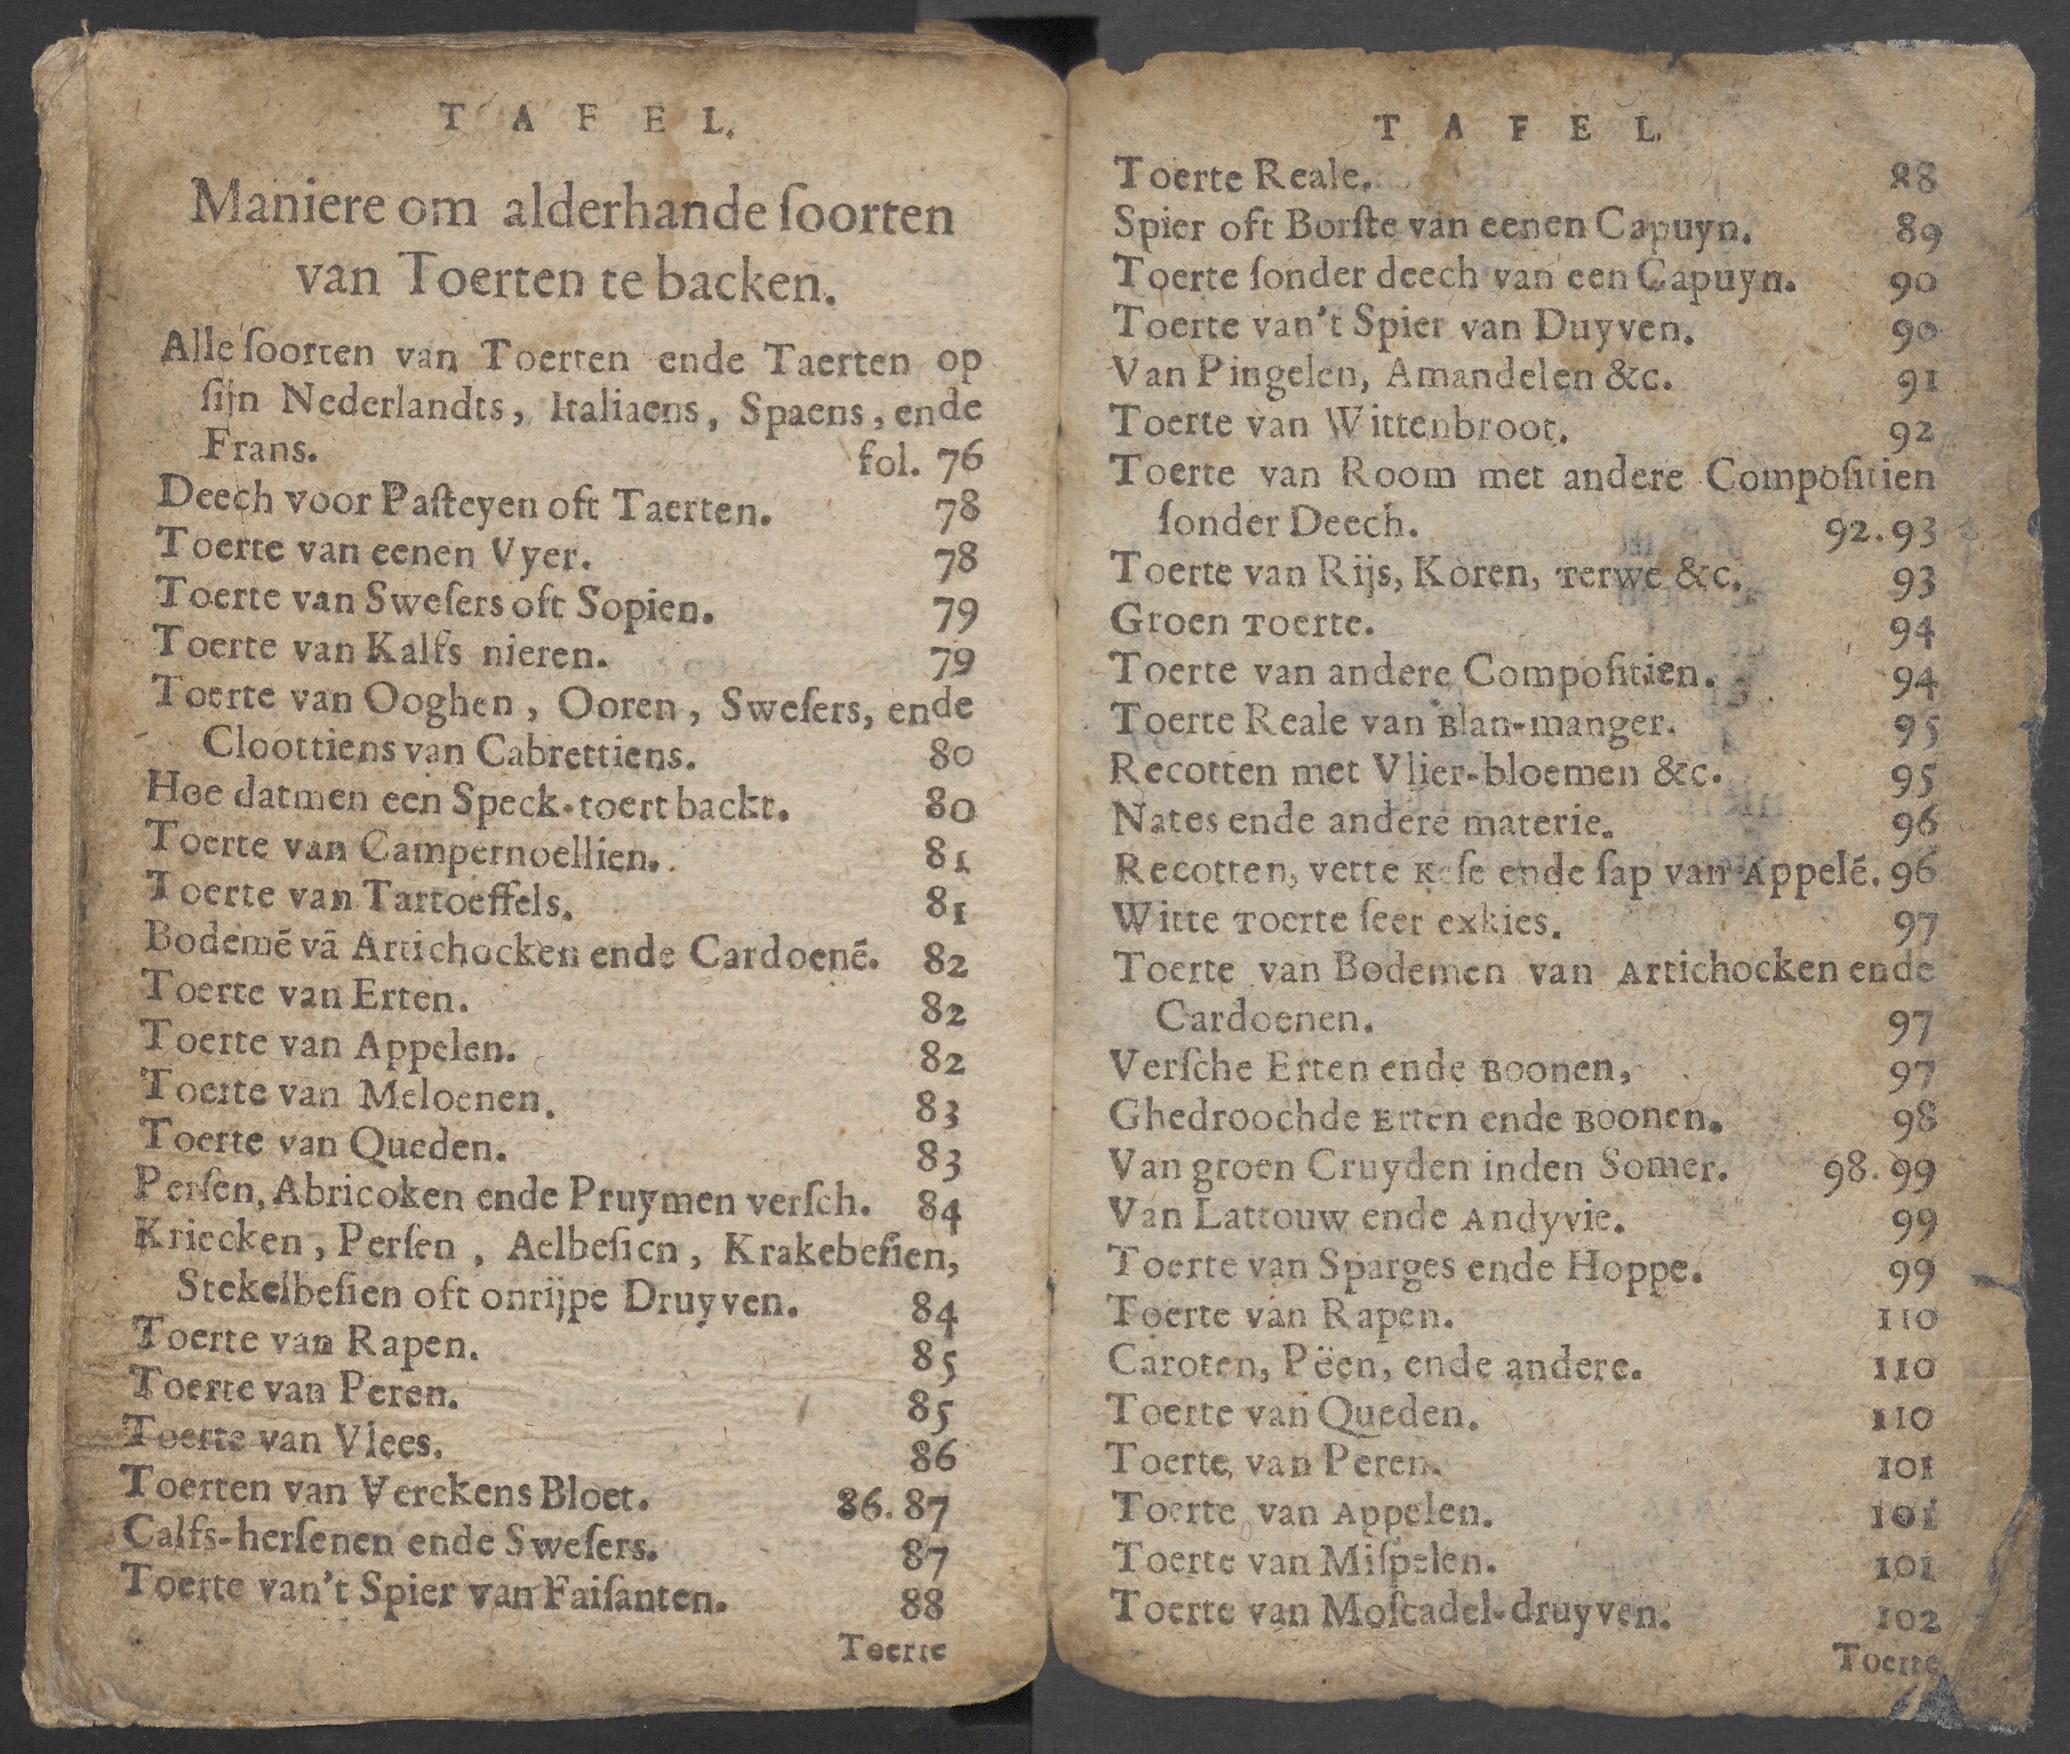 TAFEL.
Maniere om alderhande ſoorten
van Toerten te backen.
Alle ſoorten van Toerten ende Taerten op
ſijn Nederlandts, Italiaens, Spaens, ende
Frans. fol. 76
Deech voor Paſteyen oft Taerten. 78
Toerte van eenen Vyer. 78
Toerte van Sweſers oft Sopien. 79
Toerte van Kalfs nieren. 79
Toerte van Ooghen, Ooren, Sweſers, ende
Cloottiens van Cabrettiens. 80
Hoe datmen een Speck-toert backt. 80
Toerte van Campernoellien. 81
Toerte van Tartoeffels. 81
Bodemē vā Artichocken ende Cardoenē. 82
Toerte van Erten. 82
Toerte van Appelen. 82
Toerte van Meloenen. 83
Toerte van Queden. 83
Perſen, Abricoken ende Pruymen verſch. 84
Kriecken, Perſen, Aelbeſien, Krakebeſien,
Stekelbeſien oft onrijpe Druyven. 84
Toerte van Rapen. 85
Toerte van Peren. 85
Toerte van Vlees. 86
Toerten van Verckens Bloet. 86. 87
Calfs-herſenen ende Sweſers. 87
Toerte van't Spier van Faiſanten. 88
Toerte
TAFEL.
Toerte Reale. 88
Spier oft Borſte van eenen Capuyn. 89
Toerte ſonder deech van een Capuyn. 90
Toerte van't Spier van Duyven. 90
Van Pingelen, Amandelen &c. 91
Toerte van Wittenbroot. 92
Toerte van Room met andere Compoſitien
ſonder Deech. 92. 93
Toerte van Rijs, Koren, Terwe &c. 93
Groen Toerte. 94
Toerte van andere Compoſitien. 94
Toerte Reale van Blan-manger. 95
Recotten met Vlier-bloemen &c. 95
Nates ende andere materie. 96
Recotten, vette Keſe ende ſap van Appelē. 96
Witte Toerte ſeer exkies. 97
Toerte van Bodemen van Artichocken ende
Cardoenen. 97
Verſche Erten ende Boonen, 97
Ghedroochde Erten ende Boonen. 98
Van groen Cruyden inden Somer. 98. 99
Van Lattouw ende Andyvie. 99
Toerte van Sparges ende Hoppe. 99
Toerte van Rapen. 110
Caroten, Pëen, ende andere. 110
Toerte van Queden. 110
Toerte van Peren. 101
Toerte van Appelen. 101
Toerte van Miſpelen. 101
Toerte van Moſcadel-druyven. 102
Toerte